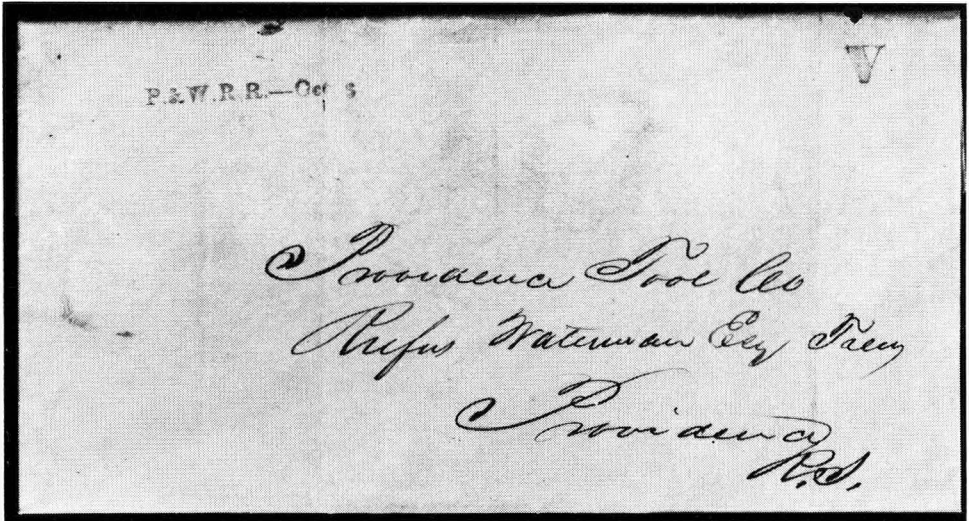 P.&W.R.R.—Oct 8
V
Providence Tool Co
Rufus Waterman Esq Treas
Providence
R.I.